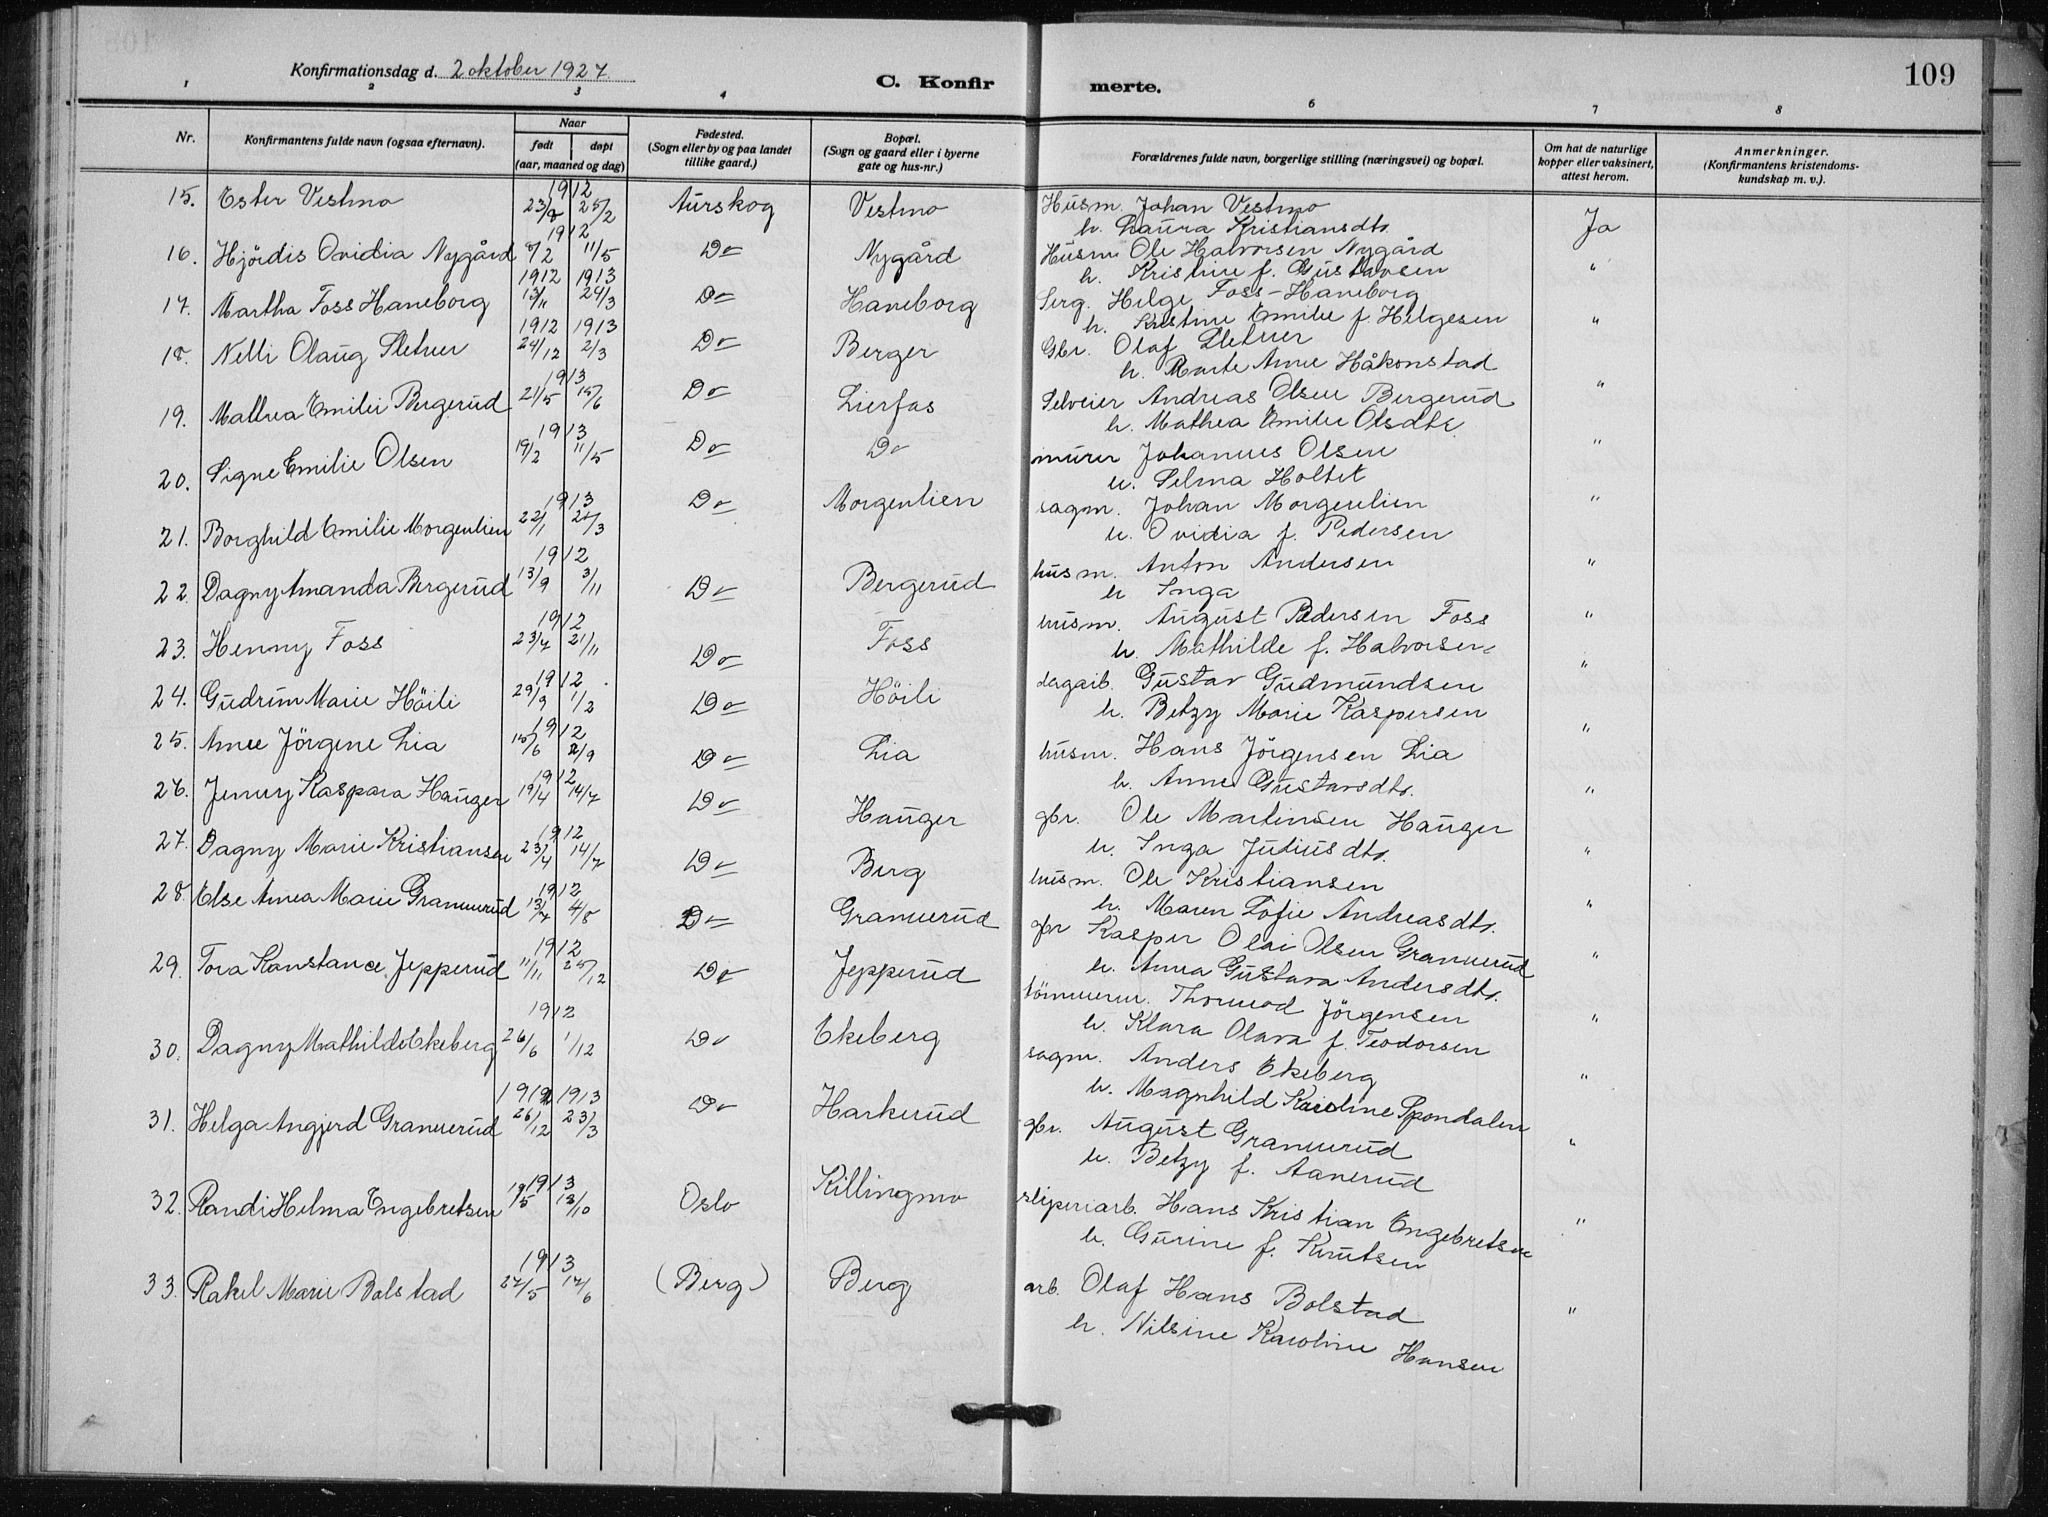 109
Konfirmationsdag d. 2 oktober 1927
C. Konfirmerte.
1 2 3 4 6 7 8
Nr.
Konfirmantens fulde navn (ogsaa efternavn).
Naar
født døpt
(aar, maaned og dag)
Fødested.
(Sogn eller by og paa landet
tillike gaard.)
Bopæl.
(Sogn og gaard eller i byerne
gate og hus-nr.)
Forældrenes fulde navn, borgerlige stilling (næringsvei) og bopæl.
Om hat de naturlige
kopper eller vaksinert,
attest herom.
Anmerkninger.
(Konfirmantens kristendoms-
kundskap m. v.).
15. Ester Vestmo 1912 23/8 25/2 Aurskog Vestmo Husm. Johan Vestmo Ja
h. Laura Kristiansdtr.
16. Hjördis Ovidia Nygård 1912 11/5 Do Nygård Husm. Ole Halvorsen Nygård "
h. Kristine f. Gustavsen
17. Martha Foss Haneborg 1912 13/11 1913 24/3 Do Haneborg Serg. Helge Foss-Haneborg "
h. Kristine Emilie f. Helgesen
18. Nelli Olaug Sletner 1912 24/12 1913 2/3 Do Berger Gbr. Olaf Sletner "
h. Marte Anne Håkonstad
19. Mathea Emilie Bergerud 1913 21/5 15/6 Do Lierfas Selveier Andreas Olsen Bergerud "
h. Mathea Emilie Olsdtr.
20. Signe Emilie Olsen 1913 19/2 11/5 Do Do murer Johannes Olsen "
h. Selma Holtet
21. Borghild Emilie Morgenlien 1913 22/1 Do Morgenlien sagm. Johan Morgenlien "
h. Ovidia f. Pedersen
22. Dagny Amanda Bergerud 1912 13/9 3/11 Do Bergerud husm. Anton Andersen "
h Inga
23. Henny Foss 1912 23/7 21/11 Do Foss husm. August Pedersen Foss "
h. Mathilde f. Halvorsen
24. Gudrun Marie Höili 1912 29/9 1/2 Do Höili Gustav Gudmundsen "
h. Betzy Marie Kaspersen
25. Anne Jörgene Lia 1912 15/6 2/9 Do Lia husm. Hans Jörgensen Lia "
h. Anne Gustavsdtr.
26. Jenny Kaspara Hauger 1912 19/4 14/7 Do Hauger gbr. Ole Martinsen Hauger "
h. Inga Juliusdtr.
27. Dagny Marie Kristiansen 1912 23/4 14/7 Do Berg husm. Ole Kristiansen "
h. Maren Sofie Andreasdtr.
28. Else Annea Marie Grannerud 1912 13/7 4/8 Do Grannerud gbr Kasper Olai Olsen Grannerud "
h. Anna Gustava Andersdtr.
29. Tora Konstance Jepperud 1912 11/11 25/12 Do Jepperud tömmerm. Thormod Jörgensen "
h. Klara Olava f. Teodorsen
30. Dagny Mathilde Ekeberg 1912 26/6 1/12 Do Ekeberg sagm. Anders Ekeberg "
h. Magnhild Karoline Spondalen
31. Helga Angjerd Grannerud 1912 26/12 1913 23/3 Do Harkerud gbr. August Grannerud "
h. Betzy f. Aanerud
32. Randi Helma Engebretsen 1913 Oslo Killingmo sliperiarb. Hans Kristian Engebretsen "
h. Gurine f. Knutsen
33. Rakel Marie Bolstad 1913 27/5 17/6 (Berg) Berg arb. Olaf Hans Bolstad "
h. Nilsine Karoline Hansen